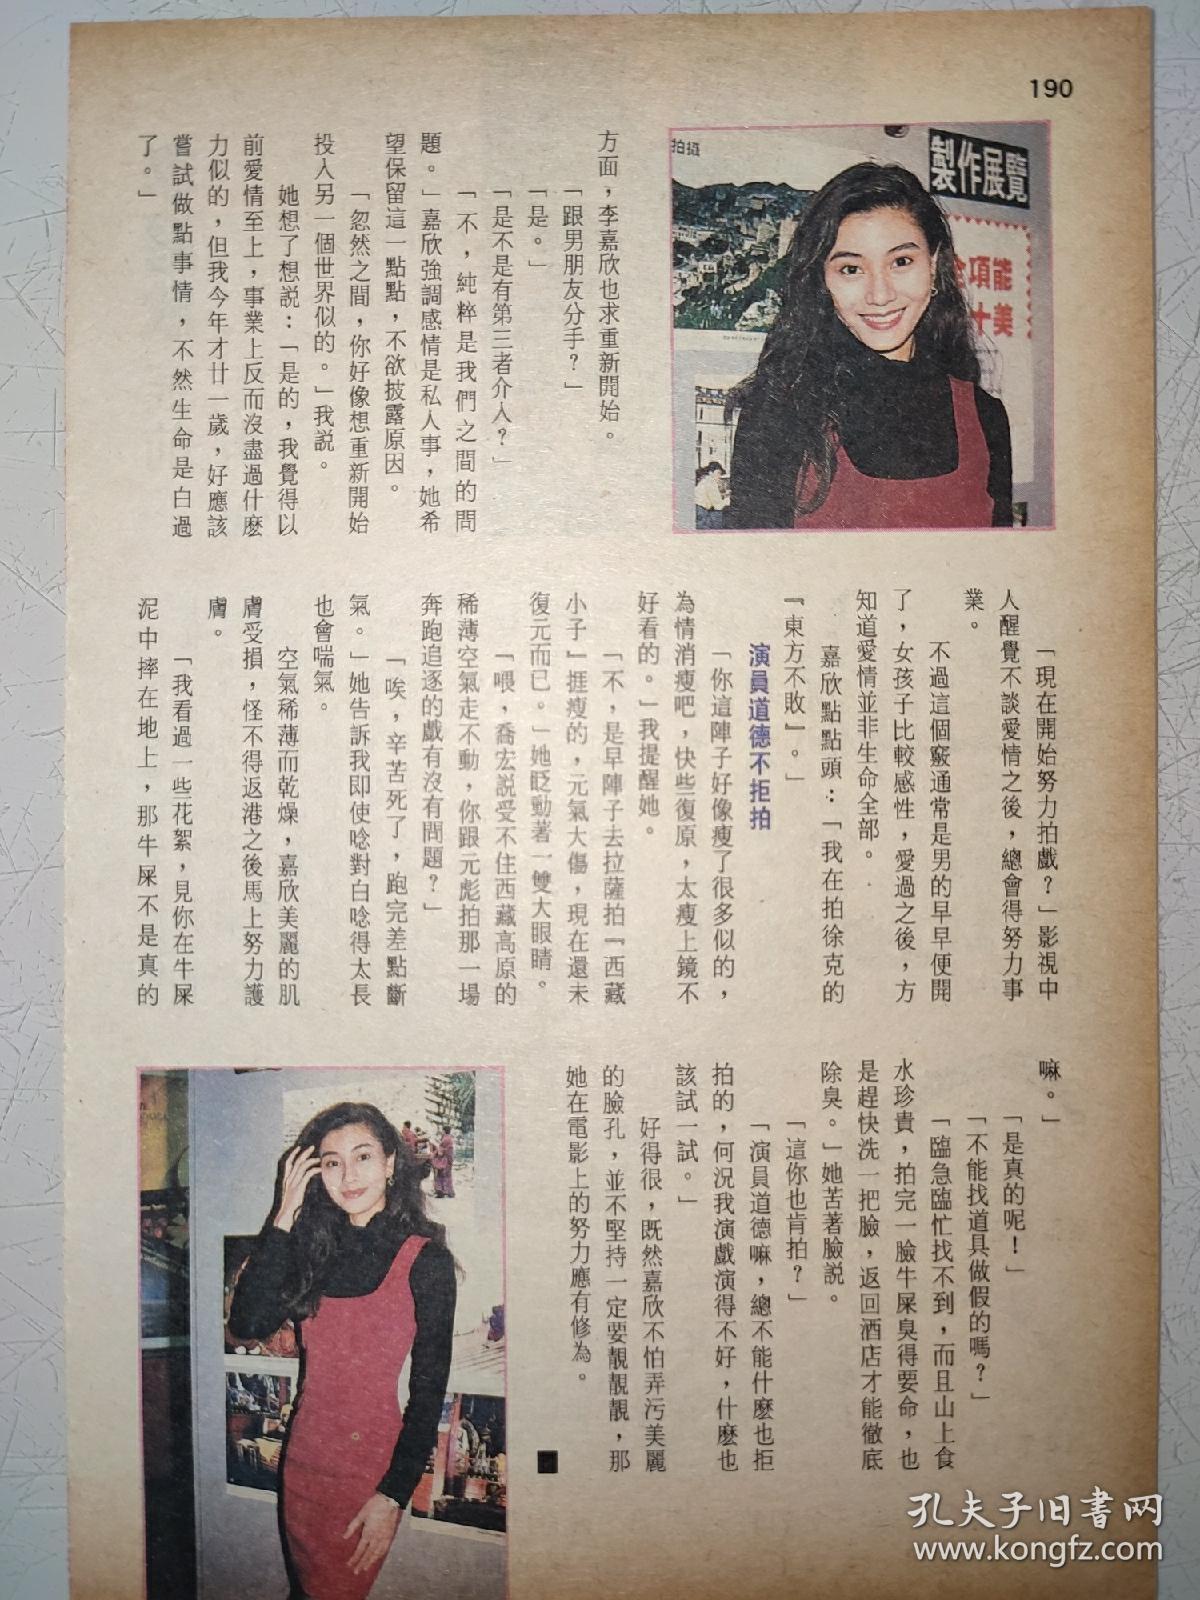 190
拍攝
製作展覽
全項能
十美
方面，李嘉欣也求重新開始。
「跟男朋友分手？」
「是。」
「是不是有第三者介入？」
「不，純粹是我們之間的問
題。」嘉欣強調感情是私人事，她希
望保留這一點點，不欲披露原因。
「忽然之間，你好像想重新開始
投入另一個世界似的。」我説。
她想了想説：「是的，我覺得以
前愛情至上，事業上反而沒盡過什麼
力似的，但我今年才廿一歲，好應該
嘗試做點事情，不然生命是白過
了。」
「現在開始努力拍戲？」影視中
人醒覺不談愛情之後，總會得努力事
業。
不過這個竅通常是男的早早便開
了，女孩子比較感性，愛過之後，方
知道愛情並非生命全部。
嘉欣點點頭：「我在拍徐克的
「東方不敗」。」
演員道德不拒拍
「你這陣子好像瘦了很多似的，
為情消瘦吧，快些復原，太瘦上鏡不
好看的。」我提醒她。
「不，是早陣子去拉薩拍『西藏
小子』捱瘦的，元氣大傷，現在還未
復元而已。」她眨動著一雙大眼睛。
「喂，喬宏説受不住西藏高原的
稀薄空氣走不動，你跟元彪拍那一場
奔跑追逐的戲有沒有問題？」
「唉，辛苦死了，跑完差點斷
氣。」她告訴我即使唸對白唸得太長
也會喘氣。
空氣稀薄而乾燥，嘉欣美麗的肌
膚受損，怪不得返港之後馬上努力護
膚。
「我看過一些花絮，見你在牛屎
泥中摔在地上，那牛屎不是真的
嘛。」
「是真的呢！」
「不能找道具做假的嗎？」
「臨急臨忙找不到，而且山上食
水珍貴，拍完一臉牛屎臭得要命，也
是趕快洗一把臉，返回酒店才能徹底
除臭。」她苦著臉説。
「這你也肯拍？」
「演員道德嘛，總不能什麼也拒
拍的，何況我演戲演得不好，什麼也
該試一試。」
好得很，既然嘉欣不怕弄污美麗
的臉孔，並不堅持一定要靚靚靚，那
她在電影上的努力應有修為。
孔夫子旧书网
www.kongfz.com